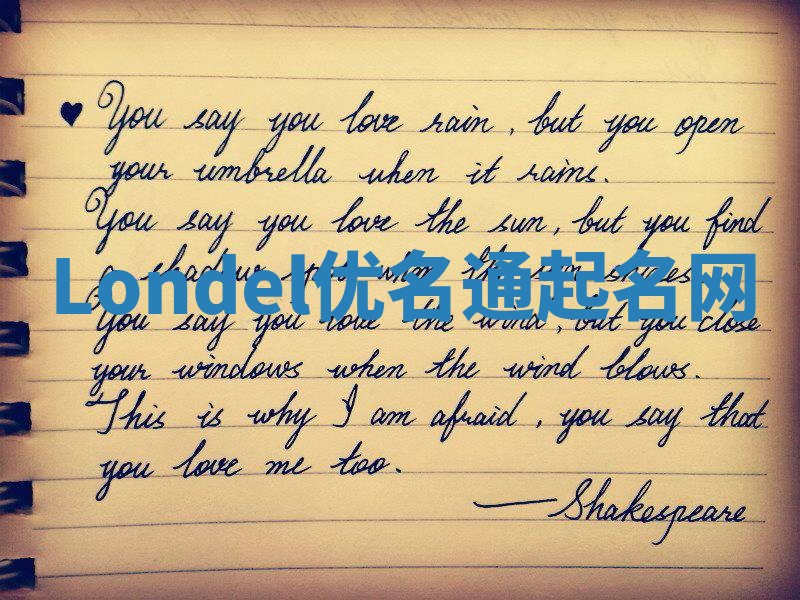 ♥ You say you love rain, but you open
your umbrella when it rains.
You say you love the sun, but you find
a shadow spot when the sun shines.
Londel优名通起名网
You say you love the wind, but you close
your windows when the wind blows.
This is why I am afraid, you say that
you love me too.
—Shakespeare